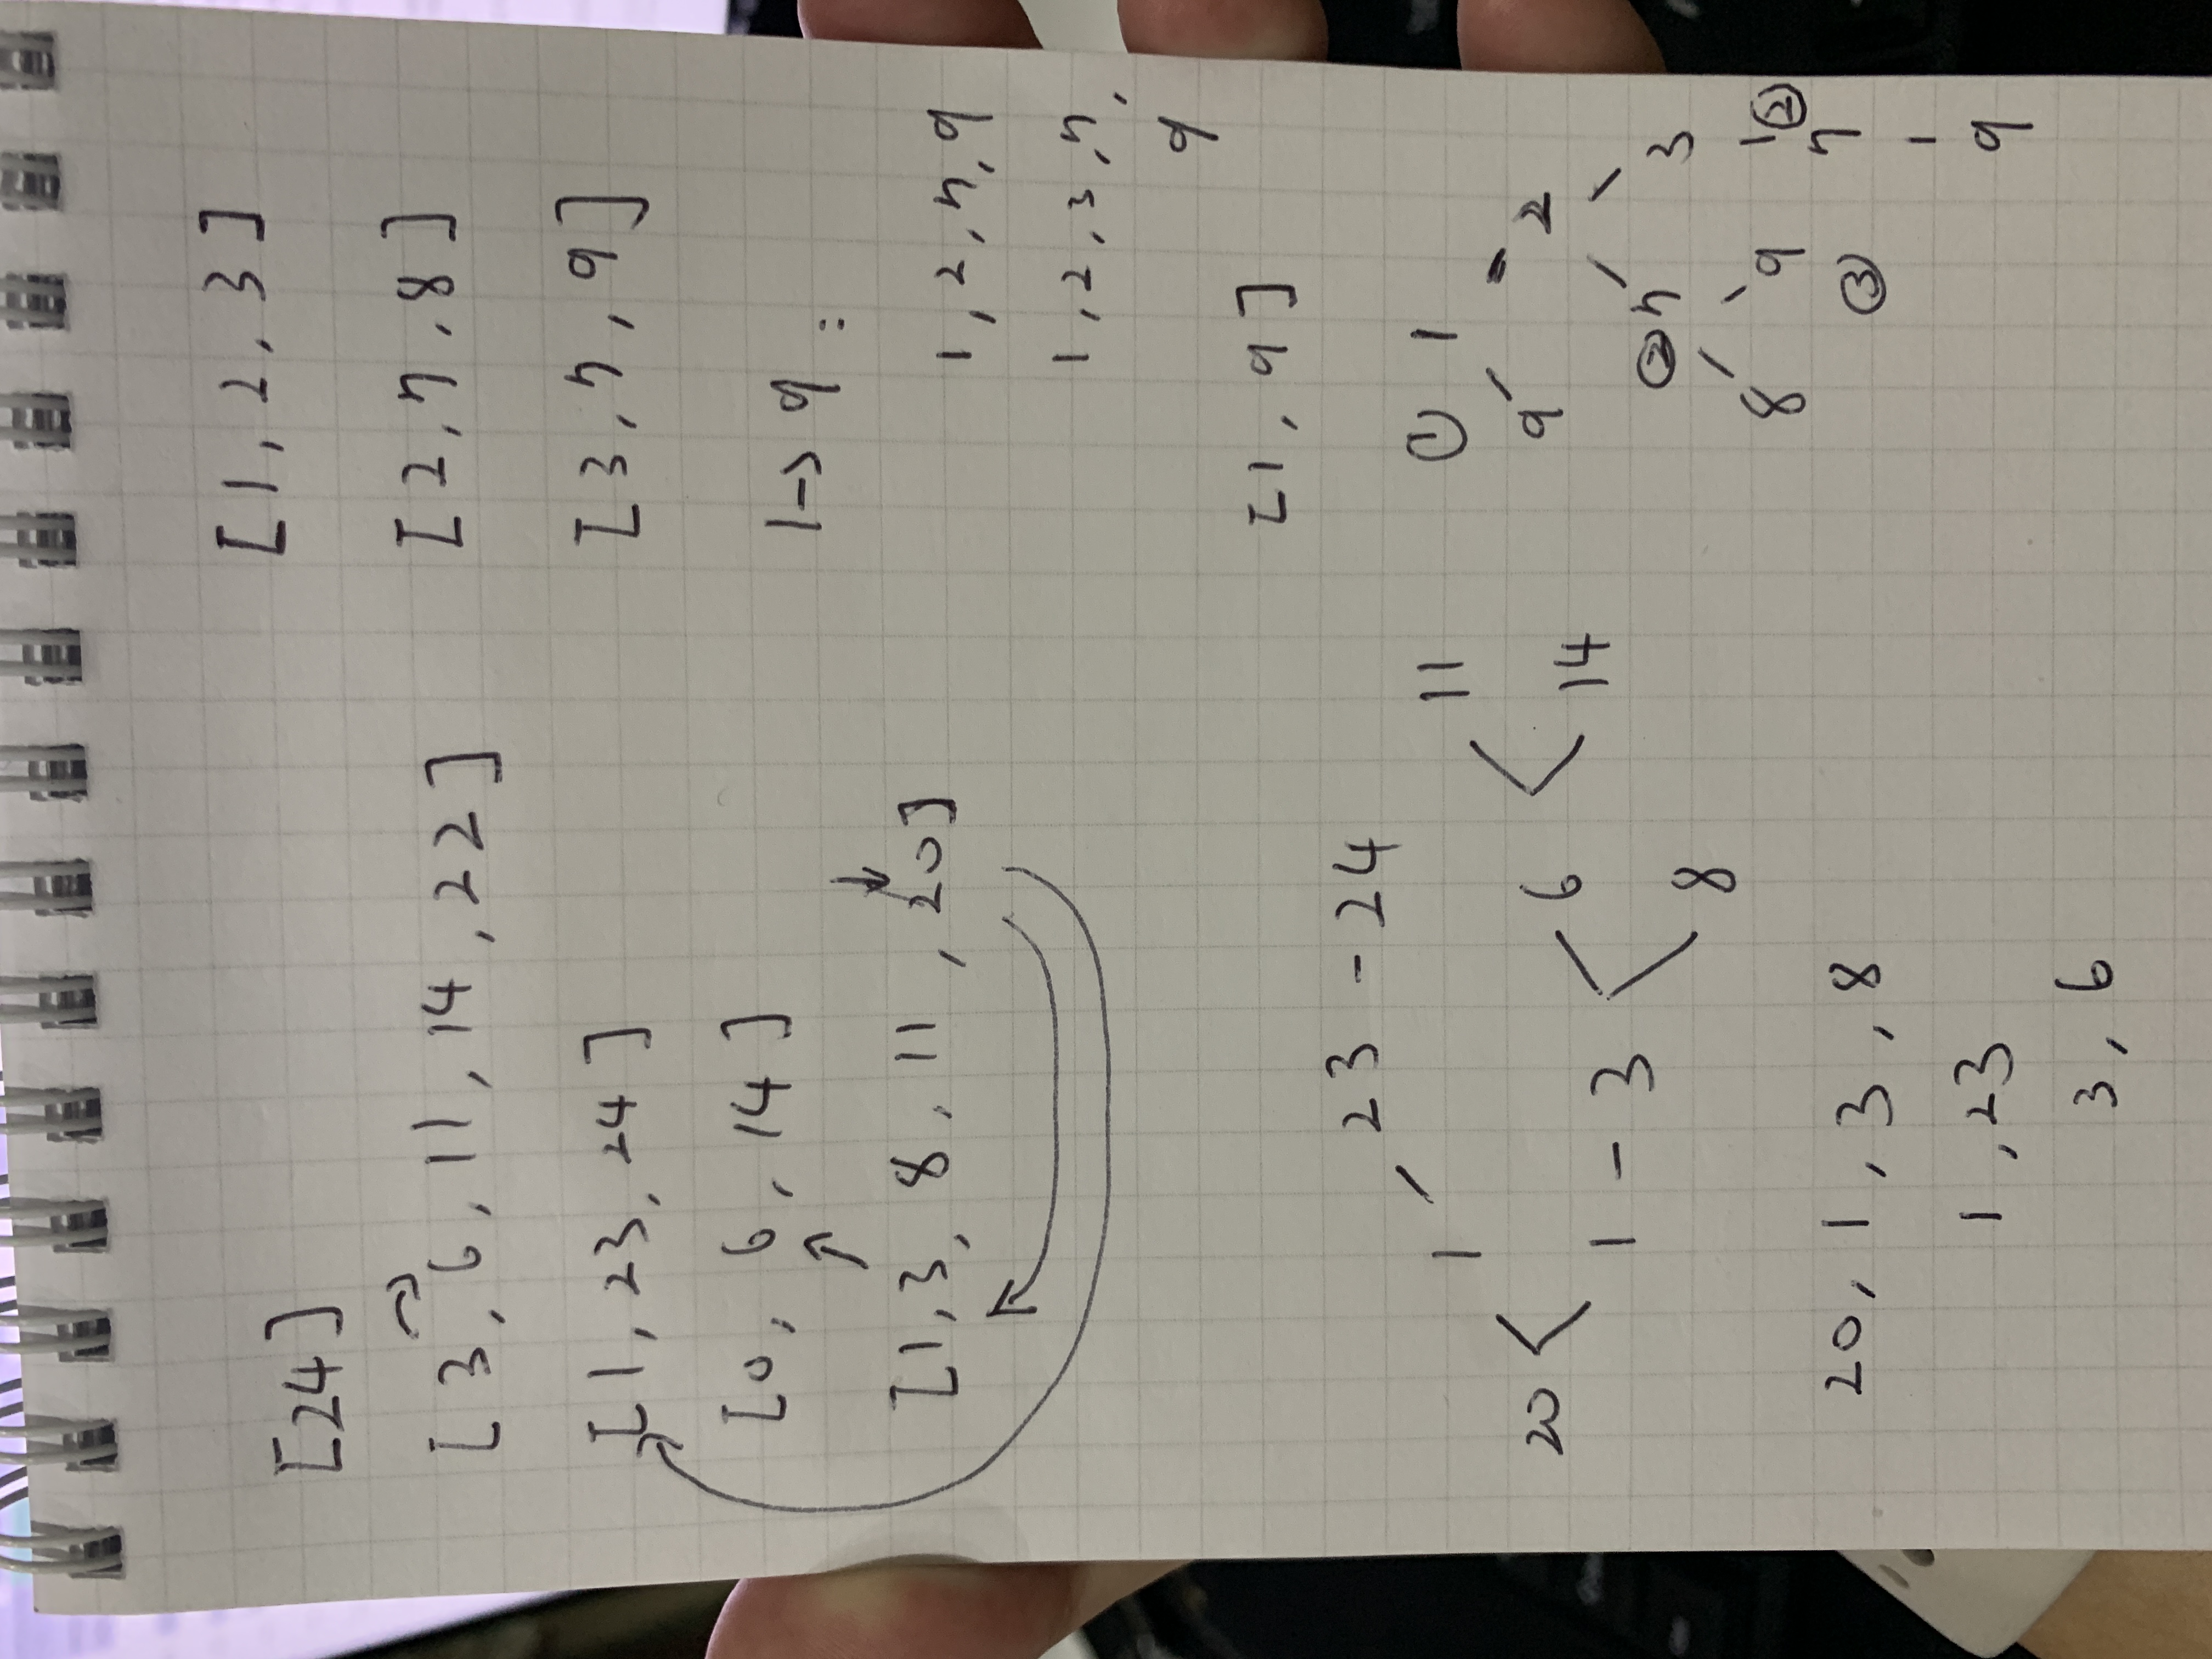 [24]
[3, 6, 11, 14, 22]
[1, 23, 24]
[0, 6, 14]
[1, 3, 8, 11, 20]
23 - 24
1
11
20
6
14
1 - 3
8
20, 1, 3, 8
1, 23
3, 6
[1, 2, 3]
[2, 7, 8]
[3, 7, 9]
1→9:
1, 2, 7, 9
1, 2, 3, 7,
9
[1, 9]
① 1
9 2
② 7 3
8 9 ②
7
③
9